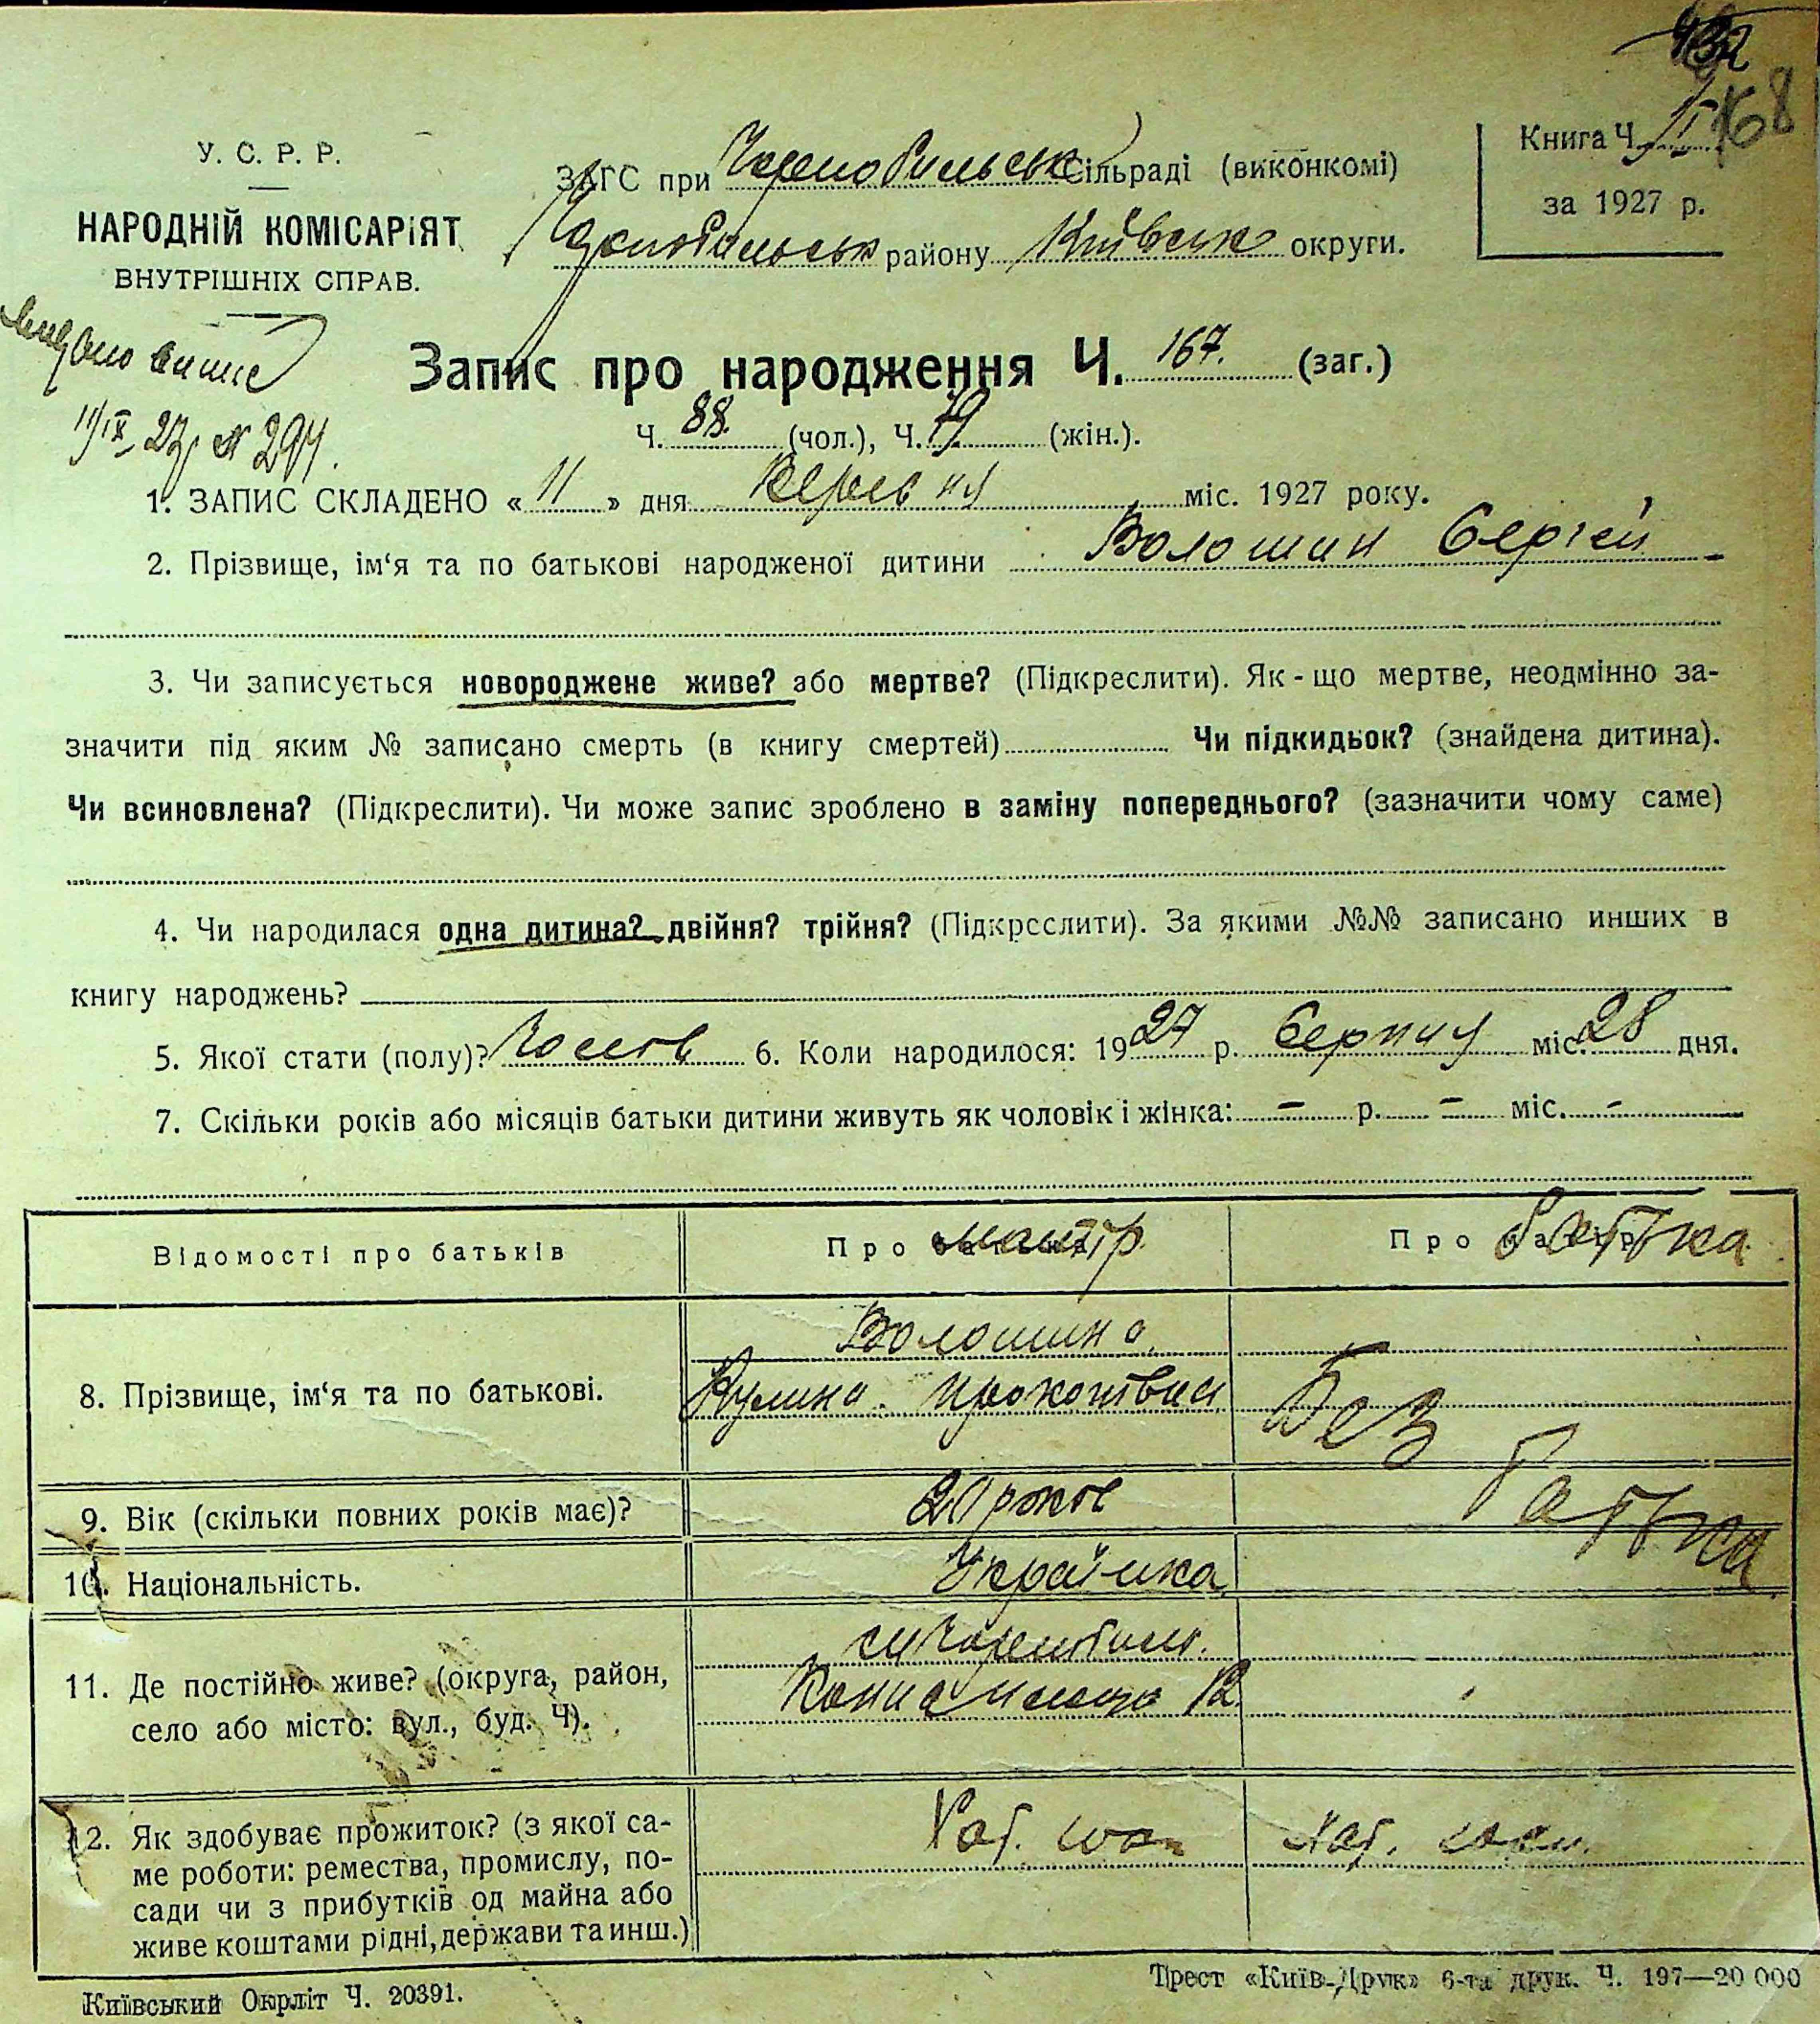 432
168
У. С. Р. Р.
НАРОДНІЙ КОМІСАРІЯТ
ВНУТРІШНІХ СПРАВ.
ЗАГС при Чорнобильськ Сільраді (виконкомі)
Чорнобильськ району Київськ округи.
Книга Ч. II
за 1927 р.
видано випис
11/IX 27 р N 294.
Запис про народження Ч. 167. (заг.)
Ч. 88. (чол.), Ч. 79 (жін.).
1. ЗАПИС СКЛАДЕНО « 11 » дня Вересня міс. 1927 року.
2. Прізвище, ім‘я та по батькові народженої дитини Волошин Сергій
3. Чи записується новороджене живе? або мертве? (Підкреслити). Як - що мертве, неодмінно за-
значити під яким № записано смерть (в книгу смертей) Чи підкидьок? (знайдена дитина).
Чи всиновлена? (Підкреслити). Чи може запис зроблено в заміну попереднього? (зазначити чому саме)
4. Чи народилася одна дитина? двійня? трійня? (Підкреслити). За якими №№ записано инших в
книгу народжень?
5. Якої стати (полу)? Чолов 6. Коли народилося: 1927 р. Серпня міс. 28 дня.
7. Скільки років або місяців батьки дитини живуть як чоловік і жінка: – р. – міс. -
Відомості про батьків Про матір. Про батька
8. Прізвище, ім‘я та по батькові. Волошина Кулина Прокопівна Без батька
9. Вік (скільки повних років має)? 20 років
10. Національність. Українка
11. Де постійно живе? (округа, район,
село або місто: вул., буд. Ч). м Чорнобиль. 12
12. Як здобуває прожиток? (з якої са-
ме роботи: ремества, промислу, по-
сади чи з прибутків од майна або
живе коштами рідні, держави та инш.)
Київський Окрліт Ч. 20391.
Трест «Київ-Друк» 6-та друк. Ч. 197—20 000